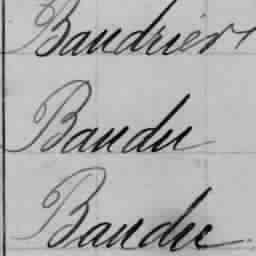 Baudrier
Baudu
Baudu